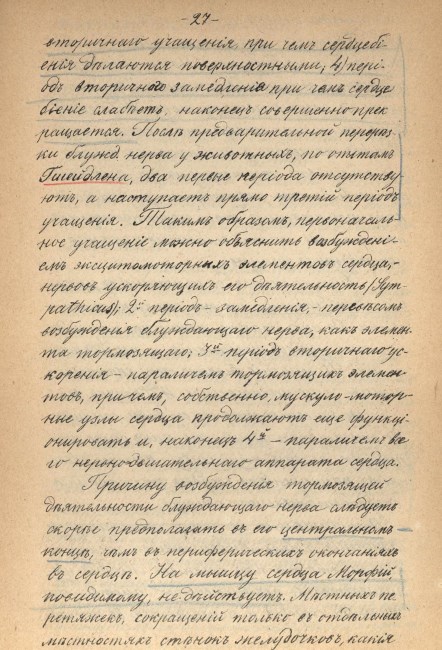 -27-
вторичнаго учащенія, при чемъ сердцебі-
енія дѣлаются поверхностными; 4) пері-
одъ вторичнаго замедленія при чемъ сердце
біеніе слабѣетъ, наконецъ совершенно прек
ращается. Послѣ предварительной перерѣз-
ки блужд. нерва у животныхъ, по опытамъ
Гшейдлена, два первые періода отсутству
ютъ, а наступаетъ прямо третій періодъ
учащенія. Такимъ образомъ, первоначаль-
ное учащеніе можно объяснить возбужденi-
емъ эксцитомоторныхъ элементовъ сердца,-
нервовъ ускоряющихъ его дѣятельность (Sym-
pathicus); 2й періодъ - замедленія, - перевѣсомъ
возбужденія блуждающаго нерва, какъ элемен-
та тормозящаго; 3й періодъ вторичнаго ус-
коренія - параличемъ тормозящихъ элемен-
товъ, при чемъ, собственно, мускуло-мотор-
ные узлы сердца продолжаютъ еще функці-
онировать и, наконецъ 4й - параличемъ все
го нервно-двигательнаго аппарата сердца.
Причину возбужденія тормозящей
дѣятельности блуждающаго нерва слѣдуетъ
скорѣе предполагать въ его центральномъ
концѣ, чѣмъ въ периферическихъ окончаніяхъ
въ сердцѣ. На мышцу сердца Морфій
повидимому, не дѣйствуетъ. Мѣстныхъ пе
ретяжекъ, сокращеній только въ отдѣльныхъ
мѣстностяхъ стѣнокъ желудочковъ, какія